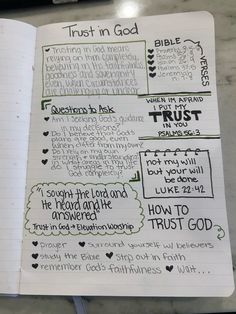 Trust in God
Trusting in God means
relying on Him completely,
believing in his faithfulness,
goodness and sovereignty
even when circumstances
are challenging or unclear
BIBLE
VERSES
Proverbs 3:5
Psalms 9:10
Psalms 37:5
Jeremiah
Questions to Ask
Am I seeking God's guidance
in my decisions?
Do I believe that God's
plans are good, even
when differ from my own?
Do I rely on my own
strength + understanding?
In what areas of my life
do I struggle to trust
God completely?
WHEN I'M AFRAID
I PUT MY
TRUST
IN YOU
PSALMS 56:3
not my will
but your will
be done.
LUKE 22:42
"I sought the Lord and
He heard and He
answered"
Trust in God → Elevation Worship
HOW TO
TRUST GOD
prayer surround yourself w/ believers
study the Bible Step out in faith
remember God's faithfulness Wait...